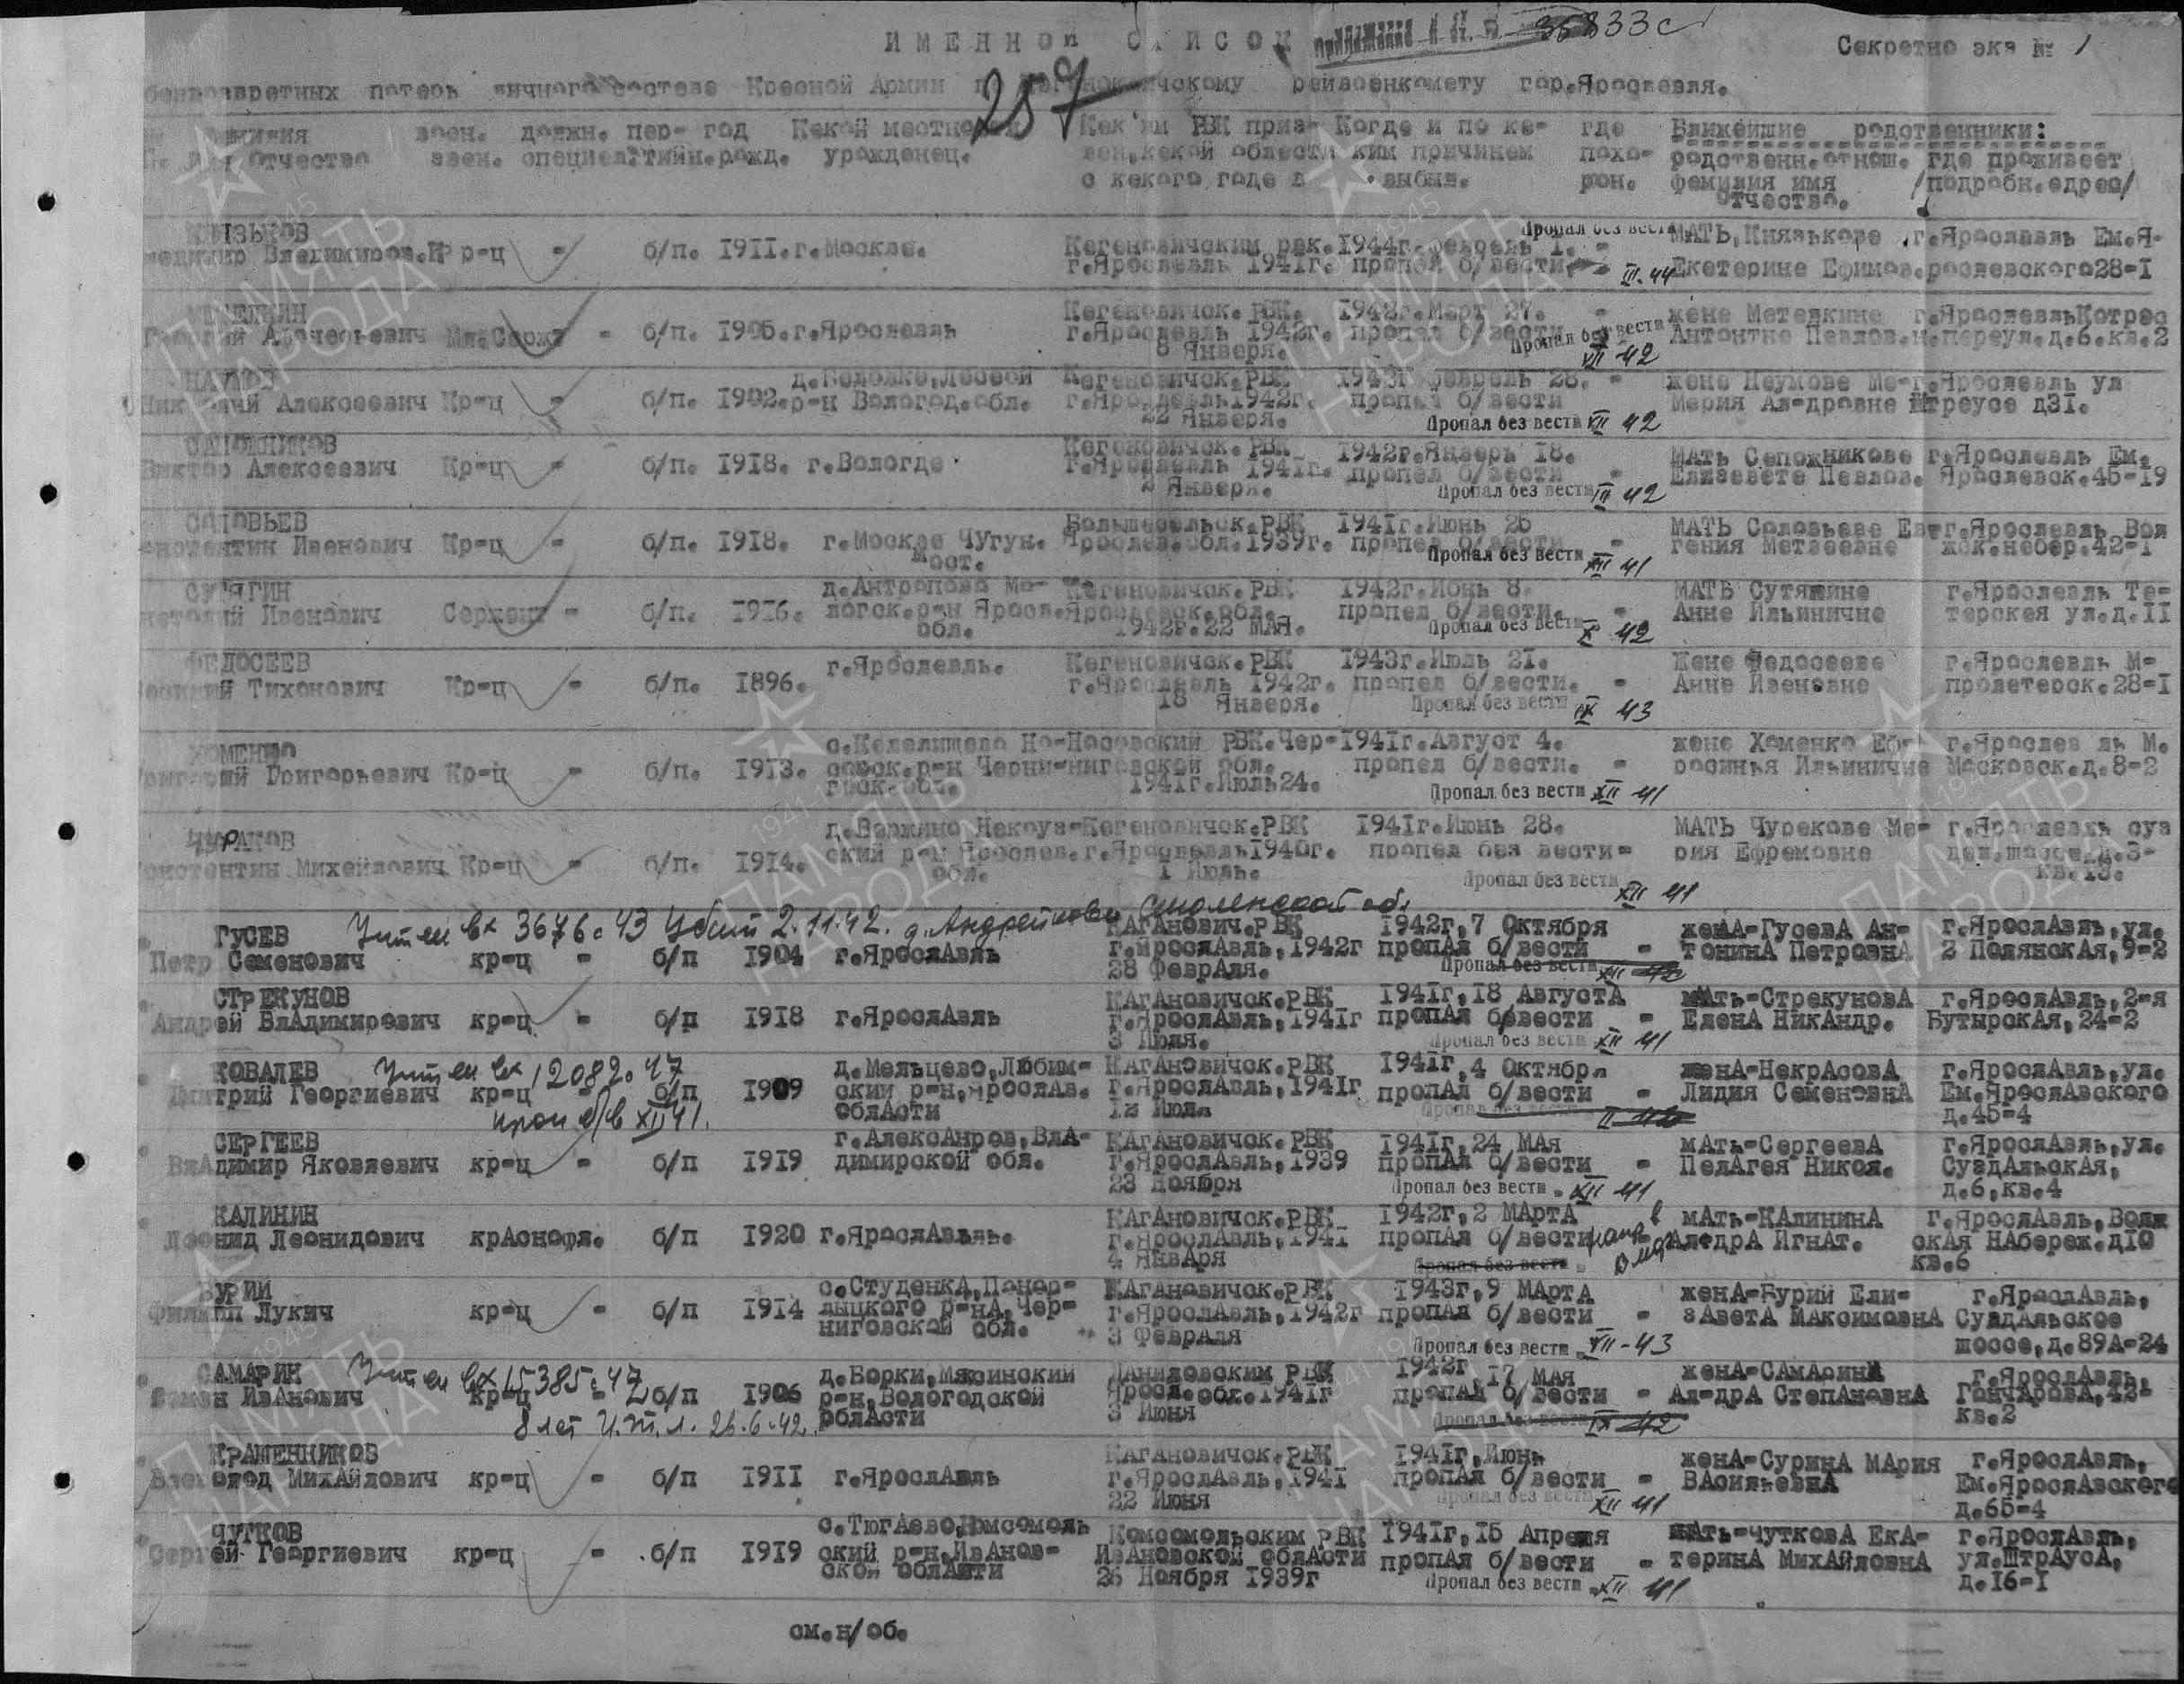 ИМЕННОЙ СПИСОК 33с
Секретно экз № 1
безвозвратных потерь личного состава Красной Армии по Кагановичскому райвоенкомату гор.Ярославля.
257
Фамилия воен. должн. пар- год Какой местно Каким РВК приз- Когда и по ка- где Ближейшие родственники:
Имя Отчество звен. специал. тийн. рожд. урожденец. ван,какой области ким причинам похо- родственн.отнош. где проживает
с какого года в выбыл. рон. фамилия имя /подробн.адрес/
Отчество.
КНЯЗЬКОВ Пропал без вести МАТЬ,Князькова г.Ярославль Ем.Я-
Владимир Владимиров. Кр-ц - б/п. 1911. г.Москва. Кагановичским рвк. 1944г.февраль 1. -
г.Ярославль 1941г. пропал б/вести. III.44 Екатерина Ефимов. рославского28-1
МЕТЕЛКИН Кагановичск.РВК. 1942г.Март 27. - жена Метелкина г.Ярославль
Георгий Мл.Серж - б/п. 1905. г.Ярославль г.Ярославль 1942г. пропал б/вести Павлов. переул.д.6.кв.2
8 Января. Пропал без вести VII 42
НАУМОВ Кагановичск.РВК 1942г Февраль 28. - жена Наумова Ма- г.Ярославль ул
Николай Алексеевич Кр-ц - б/п. 1902. р-н Вологод.обл. г.Ярославль1942г. пропал б/вести Мария Ал-дровне Штрауса д31.
22 Января. Пропал без вести VII 42
САПОЖНИКОВ Кагановичск.РВК 1942г.Январь 18. МАТЬ Сапожникова г.Ярославль Ем.
Виктор Алексеевич Кр-ц - б/п. 1918. г.Вологда г.Ярославль 1941г. пропал б/вести - Елизавета Павлов. Ярославск.45-19
2 Января. Пропал без вести III 42
СОЛОВЬЕВ Большесельск.РВК 1941г.Июнь 25 МАТЬ Соловьева Ев- г.Ярославль Вол
Константин Иванович Кр-ц - б/п. 1918. г.Москва Чугун. Ярослав.обл.1939г. пропал б/вести - гения Матвеевна жск.набер.42-1
мост. Пропал без вести XII 41
СУТЯГИН д.Антропово Мо- Кагановичск.РВК 1942г.Июнь 8. МАТЬ Сутягина г.Ярославль Те-
Анатолий Иванович Сержант - б/п. 1916. логск.р-н Яросл. Ярославск.обл. пропал б/вести. - Анна Ильинична терская ул.д.11
обл. 1942г.22 МАЯ. Пропал без вести X 42
ФЕДОСЕЕВ г.Ярославль. Кагановичск.РВК 1943г.Июль 21. Жена Федосеева г.Ярославль М-
Василий Тихонович Кр-ц - б/п. 1896. г.Ярославль 1942г. пропал б/вести. - Анна Ивановна пролетарск.28-1
18 Января. Пропал без вести IX 43
ХОМЕНКО Но-Носовский РВК.Чер- 1941г.Август 4. жена Хоменко Еф- г.Ярослав ль М.
Григорий Григорьевич Кр-ц - б/п. 1913. совск.р-н Черни- ниговской обл. пропал б/вести. - росинья Ильинична Московск.д.8-2
гвск.обл. 1941г.Июль24. Пропал без вести XII 41
ЧУРАКОВ д.Варжино Некоуз- Кагановичск.РВК 1941г.Июнь 28. МАТЬ Чуракова Ма- г.Ярославль суз
Константин Михайлович Кр-ц - б/п. 1914. ский р-н Ярослав. г.Ярославль1940г. пропал без вести- рия Ефремовна дал.шоссе д.3-
обл. 1 Июль. Пропал без вести XII 41 кв.13.
Учтен вх 3676с 43 Убит 2.11.42. д.Андрейково Смоленской обл
ГУСЕВ КАгАнович.РВК 1942г,7 Октября женА-ГусевА Ан- г.ЯрослАвль,ул.
Петр Семенович кр-ц - б/п 1904 г.ЯрослАвль г.ЯрослАвль,1942г пропАл б/вести - тонинА ПетровнА 2 ПолянскАя,9-2
28 ФеврАля. Пропал без вести XII 42
СТРЕКУНОВ КАгАновичск.РВК 1941г,18 АвгустА мАть-СтрекуновА г.ЯрослАвль,2-я
Андрей ВлАдимирович кр-ц - б/п 1918 г.ЯрослАвль г.ЯрослАвль,1941г пропАл б/вести - ЕленА НикАндр. БутырскАя,24-2
3 Июля. Пропал без вести XII 41
КОВАЛЕВ Учтен вх 12082с 47 д.Мельцево,Любим- КАгАновичск.РВК 1941г,4 Октября женА-НекрАсовА г.ЯрослАвль,ул.
Дмитрий Георгиевич кр-ц - б/п 1909 ский р-н,ЯрослАв. г.ЯрослАвль,1941г пропАл б/вести - Лидия СеменовнА Ем.ЯрослАвского
проп б/в XII 41. облАсти 12 Июля д.45-4
СЕРГЕЕВ г.АлексАнров,ВлА- КАгАновичск.РВК 1941г,24 МАя мАть-СергеевА г.ЯрослАвль,ул.
ВлАдимир Яковлевич кр-ц - б/п 1919 димирской обл. г.ЯрослАвль,1939 пропАл б/вести - ПелАгея Никол. СуздАльскАя,
23 Ноября Пропал без вести XII 41 д.6,кв.4
КАЛИНИН КАгАновичск.РВК 1942г,2 МАртА мАть-КАлининА г.ЯрослАвль,Волж
Леонид Леонидович крАснофл. б/п 1920 г.ЯрослАвль. г.ЯрослАвль,1941 пропАл б/вести Ал-дрА ИгнАт. скАя НАбереж.д10
4 ЯнвАря Пропал без вести кв.6
БУРИЙ с.СтуденкА,Понор- КАгАновичск.РВК 1943г,9 МАртА женА-Бурий Ели- г.ЯрослАвль,
Филипп Лукич кр-ц - б/п 1914 лыцкого р-нА,Чер- г.ЯрослАвль,1942г пропАл б/вести - зАветА МАксимовнА СуздАльское
ниговской обл. 3 ФеврАля Пропал без вести VII-43 шоссе,д.89А-24
САМАРИН Учтен вх 15385с 47 д.Борки,Мяксинский ДАниловским РВК 1942г,17 МАя женА-САмАринА г.ЯрослАвль,
ИвАнович кр-ц - б/п 1906 р-н,Вологодской Яросл.обл.1941г пропАл б/вести - Ал-дрА СтепАновнА ГончАровА,42-
8 лет И.т.л. 26.6.42. облАсти 3 Июня Пропал без вести IX 42 кв.2
КРАШЕННИКОВ КАгАновичск.РВК 1941г,Июнь женА-СуринА МАрия г.ЯрослАвль,
Всеволод МихАйлович кр-ц - б/п 1911 г.ЯрослАвль г.ЯрослАвль,1941 пропАл б/вести - ВАсильевнА Ем.ЯрослАвского
22 Июня Пропал без вести XII 41 д.65-4
ЧУТКОВ с.ТюгАево,Комсомоль Комсомольским РВК 1941г,15 Апреля мАть-ЧутковА ЕкА- г.ЯрослАвль,
Сергей Георгиевич кр-ц - б/п 1919 ский р-н,ИвАнов- ИвАновской облАсти пропАл б/вести - теринА МихАйловнА ул.ШтрАусА,
ской облАсти 26 Ноября 1939г Пропал без вести XII 41 д.16-1
см.н/об.